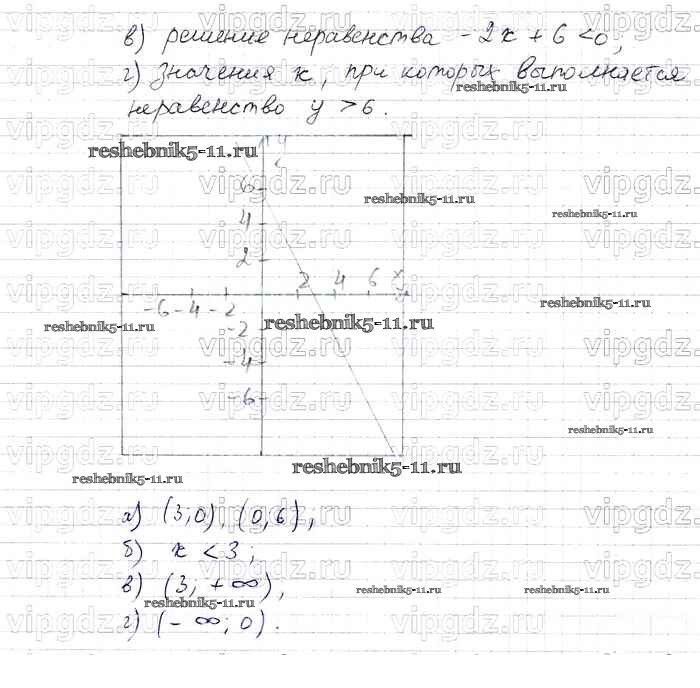 в) решение неравенства -2x + 6 < 0;
г) значения x, при которых выполняется
неравенство y > 6.
y
6
4
2
2 4 6 x
-6 -4 -2
-2
-4
-6
а) (3; 0), (0; 6);
б) x < 3;
в) (3; +∞);
г) (-∞; 0).
reshebnik5-11.ru
vipgdz.ru